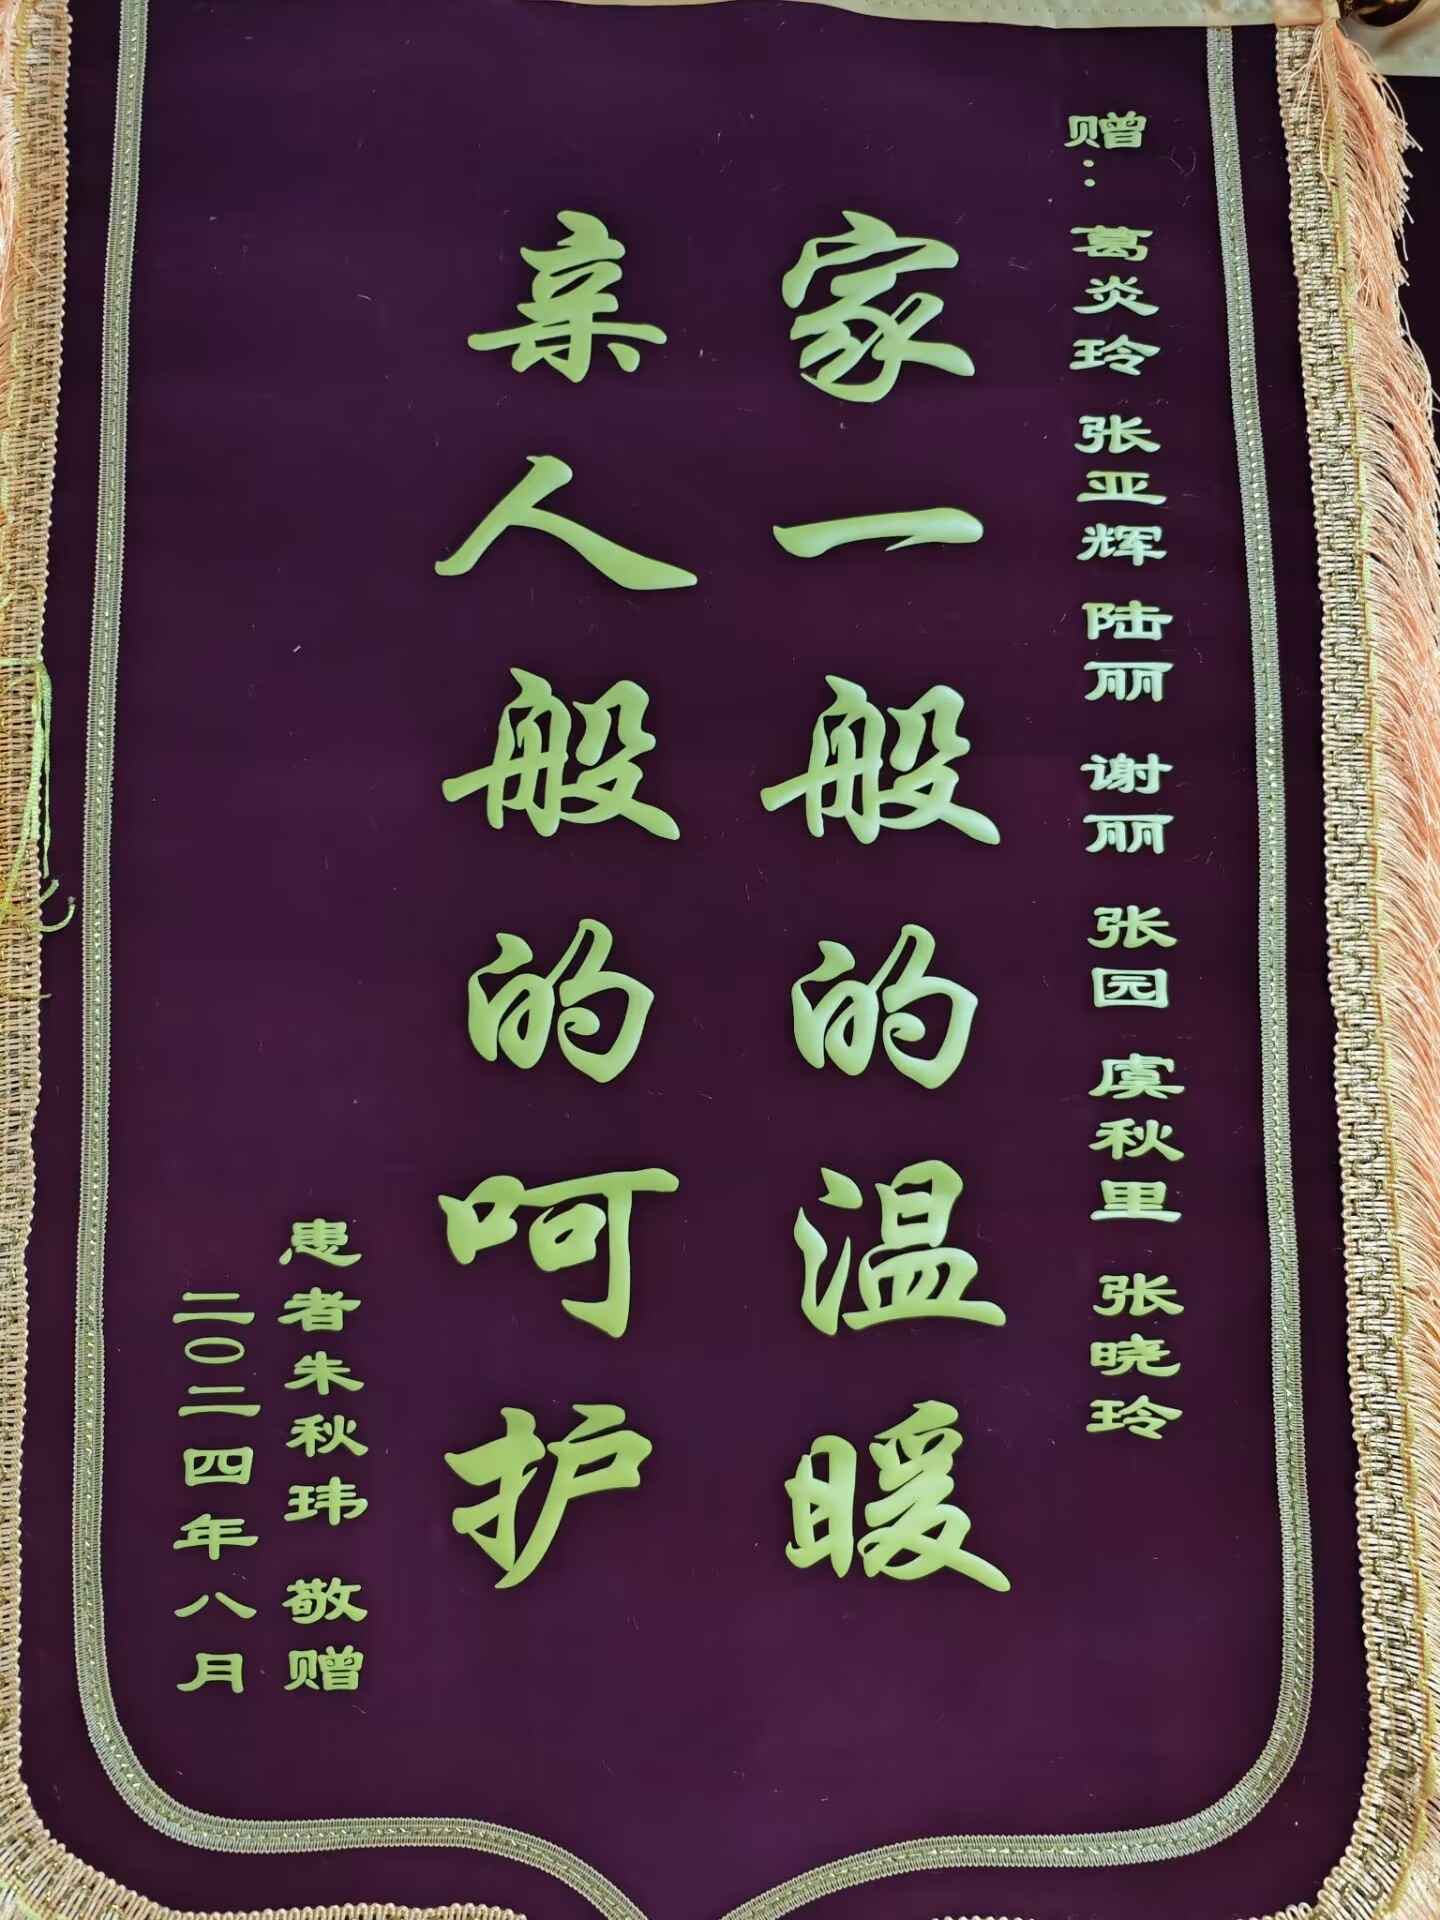 赠：葛炎玲 张亚辉 陆丽 谢丽 张园 虞秋里 张晓玲
家一般的温暖
亲人般的呵护
患者朱秋玮 敬赠
二〇二四年八月